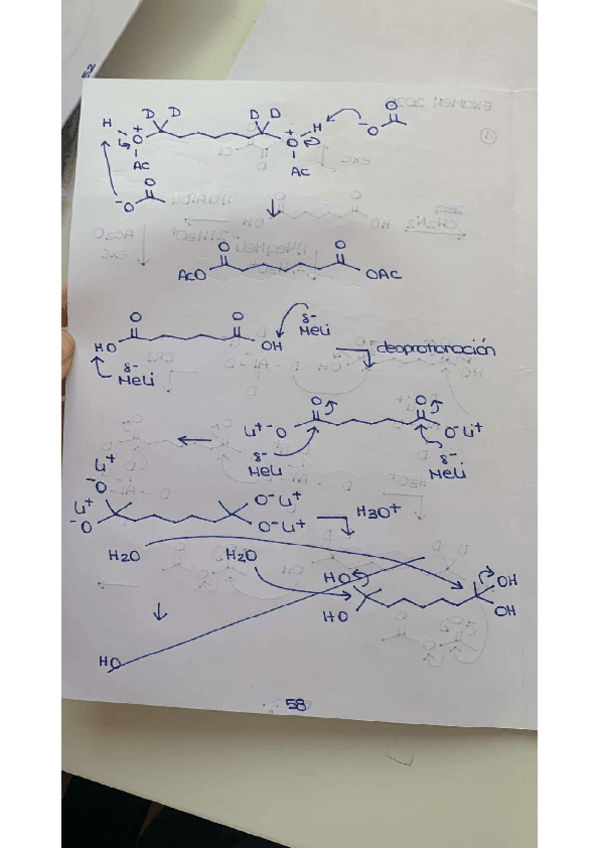 D D D D
H + O + O H O - O
Ac Ac
O - O
O O
AcO OAc
O O δ-
HO OH MeLi deoprotionación
δ-
MeLi
O O
Li+ -O O-Li+
δ- δ-
MeLi MeLi
Li+
-O O-Li+
Li+ -O O-Li+ H3O+
H2O H2O
HO OH
HO OH
HO
58